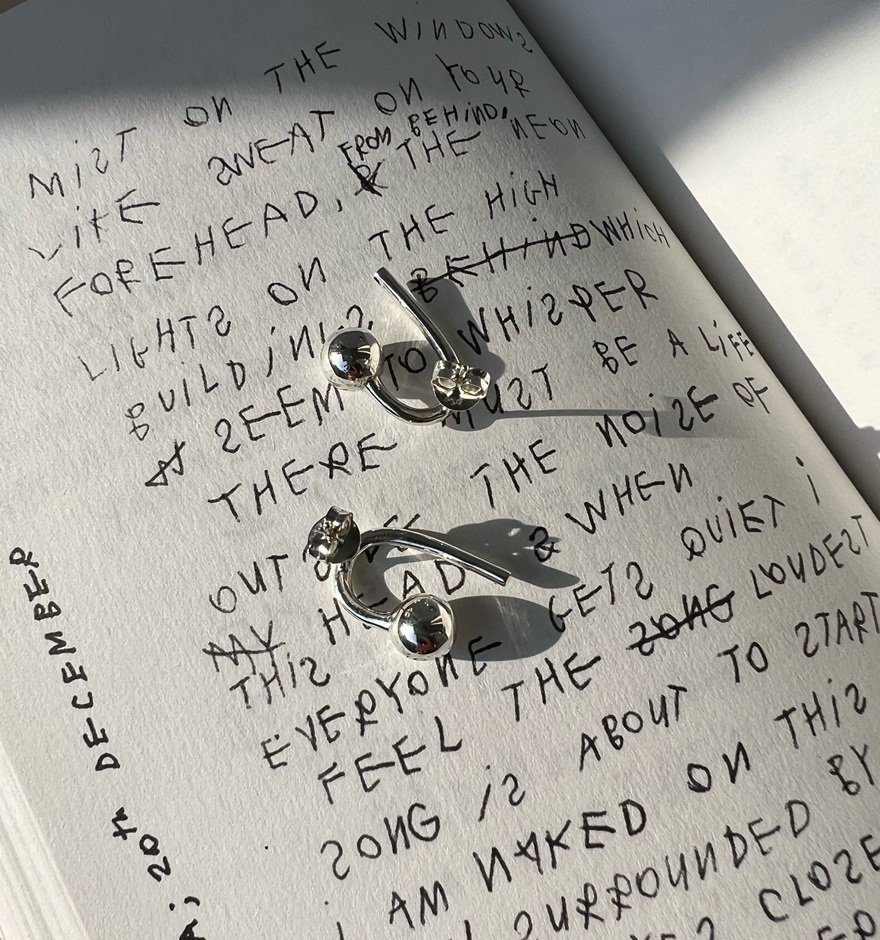 MIST ON THE WINDOWS
LIKE SWEAT ON YOUR
FROM BEHIND,
FOREHEAD, & THE NEON
LIGHTS ON THE HIGH
BUILDINGS BEHIND WHICH
SEEM TO WHISPER
THERE MUST BE A LIFE
OUTSIDE THE NOISE OF
MY HEAD & WHEN
THIS
EVERYONE GETS QUIET I
FEEL THE SONG LOUDEST
SONG IS ABOUT TO START
I AM NAKED ON THIS
SURROUNDED BY
CLOSE
20th DECEMBER